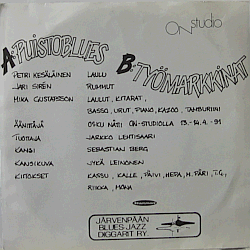 ON studio
A-PUISTOBLUES
B-TYÖMARKKINAT
PETRI KESÄLÄINEN LAULU
JARI SIRÉN RUMMUT
MIKA GUSTAFSSON LAULUT, KITARAT,
BASSO, URUT, PIANO, KAZOO, TAMBURIINI
ÄÄNITTÄJÄ OSKU NÄTI ON-STUDIOLLA 13.-14.4. 91
TUOTTAJA JARKKO LEHTISAARI
KANSI SEBASTIAN BERG
KANSIKUVA JYKÄ LEINONEN
KIITOKSET KASSU, KALLE, PÄIVI, HEPA, M. PÄRI, T.G.,
RIIKKA, MONA
JÄRVENPÄÄN
BLUES JAZZ
DIGGARIT RY.